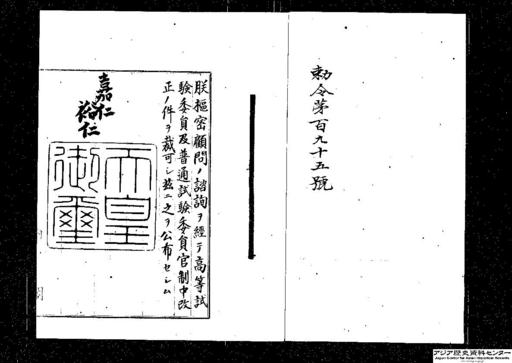 勅令第百九十五號
朕樞密顧問ノ諮詢ヲ經テ高等試
驗委員及普通試驗委員官制中改
正ノ件ヲ裁可シ茲ニ之ヲ公布セシム
嘉仁
裕仁
天皇
御璽
アジア歴史資料センター
Japan Center for Asian Historical Records